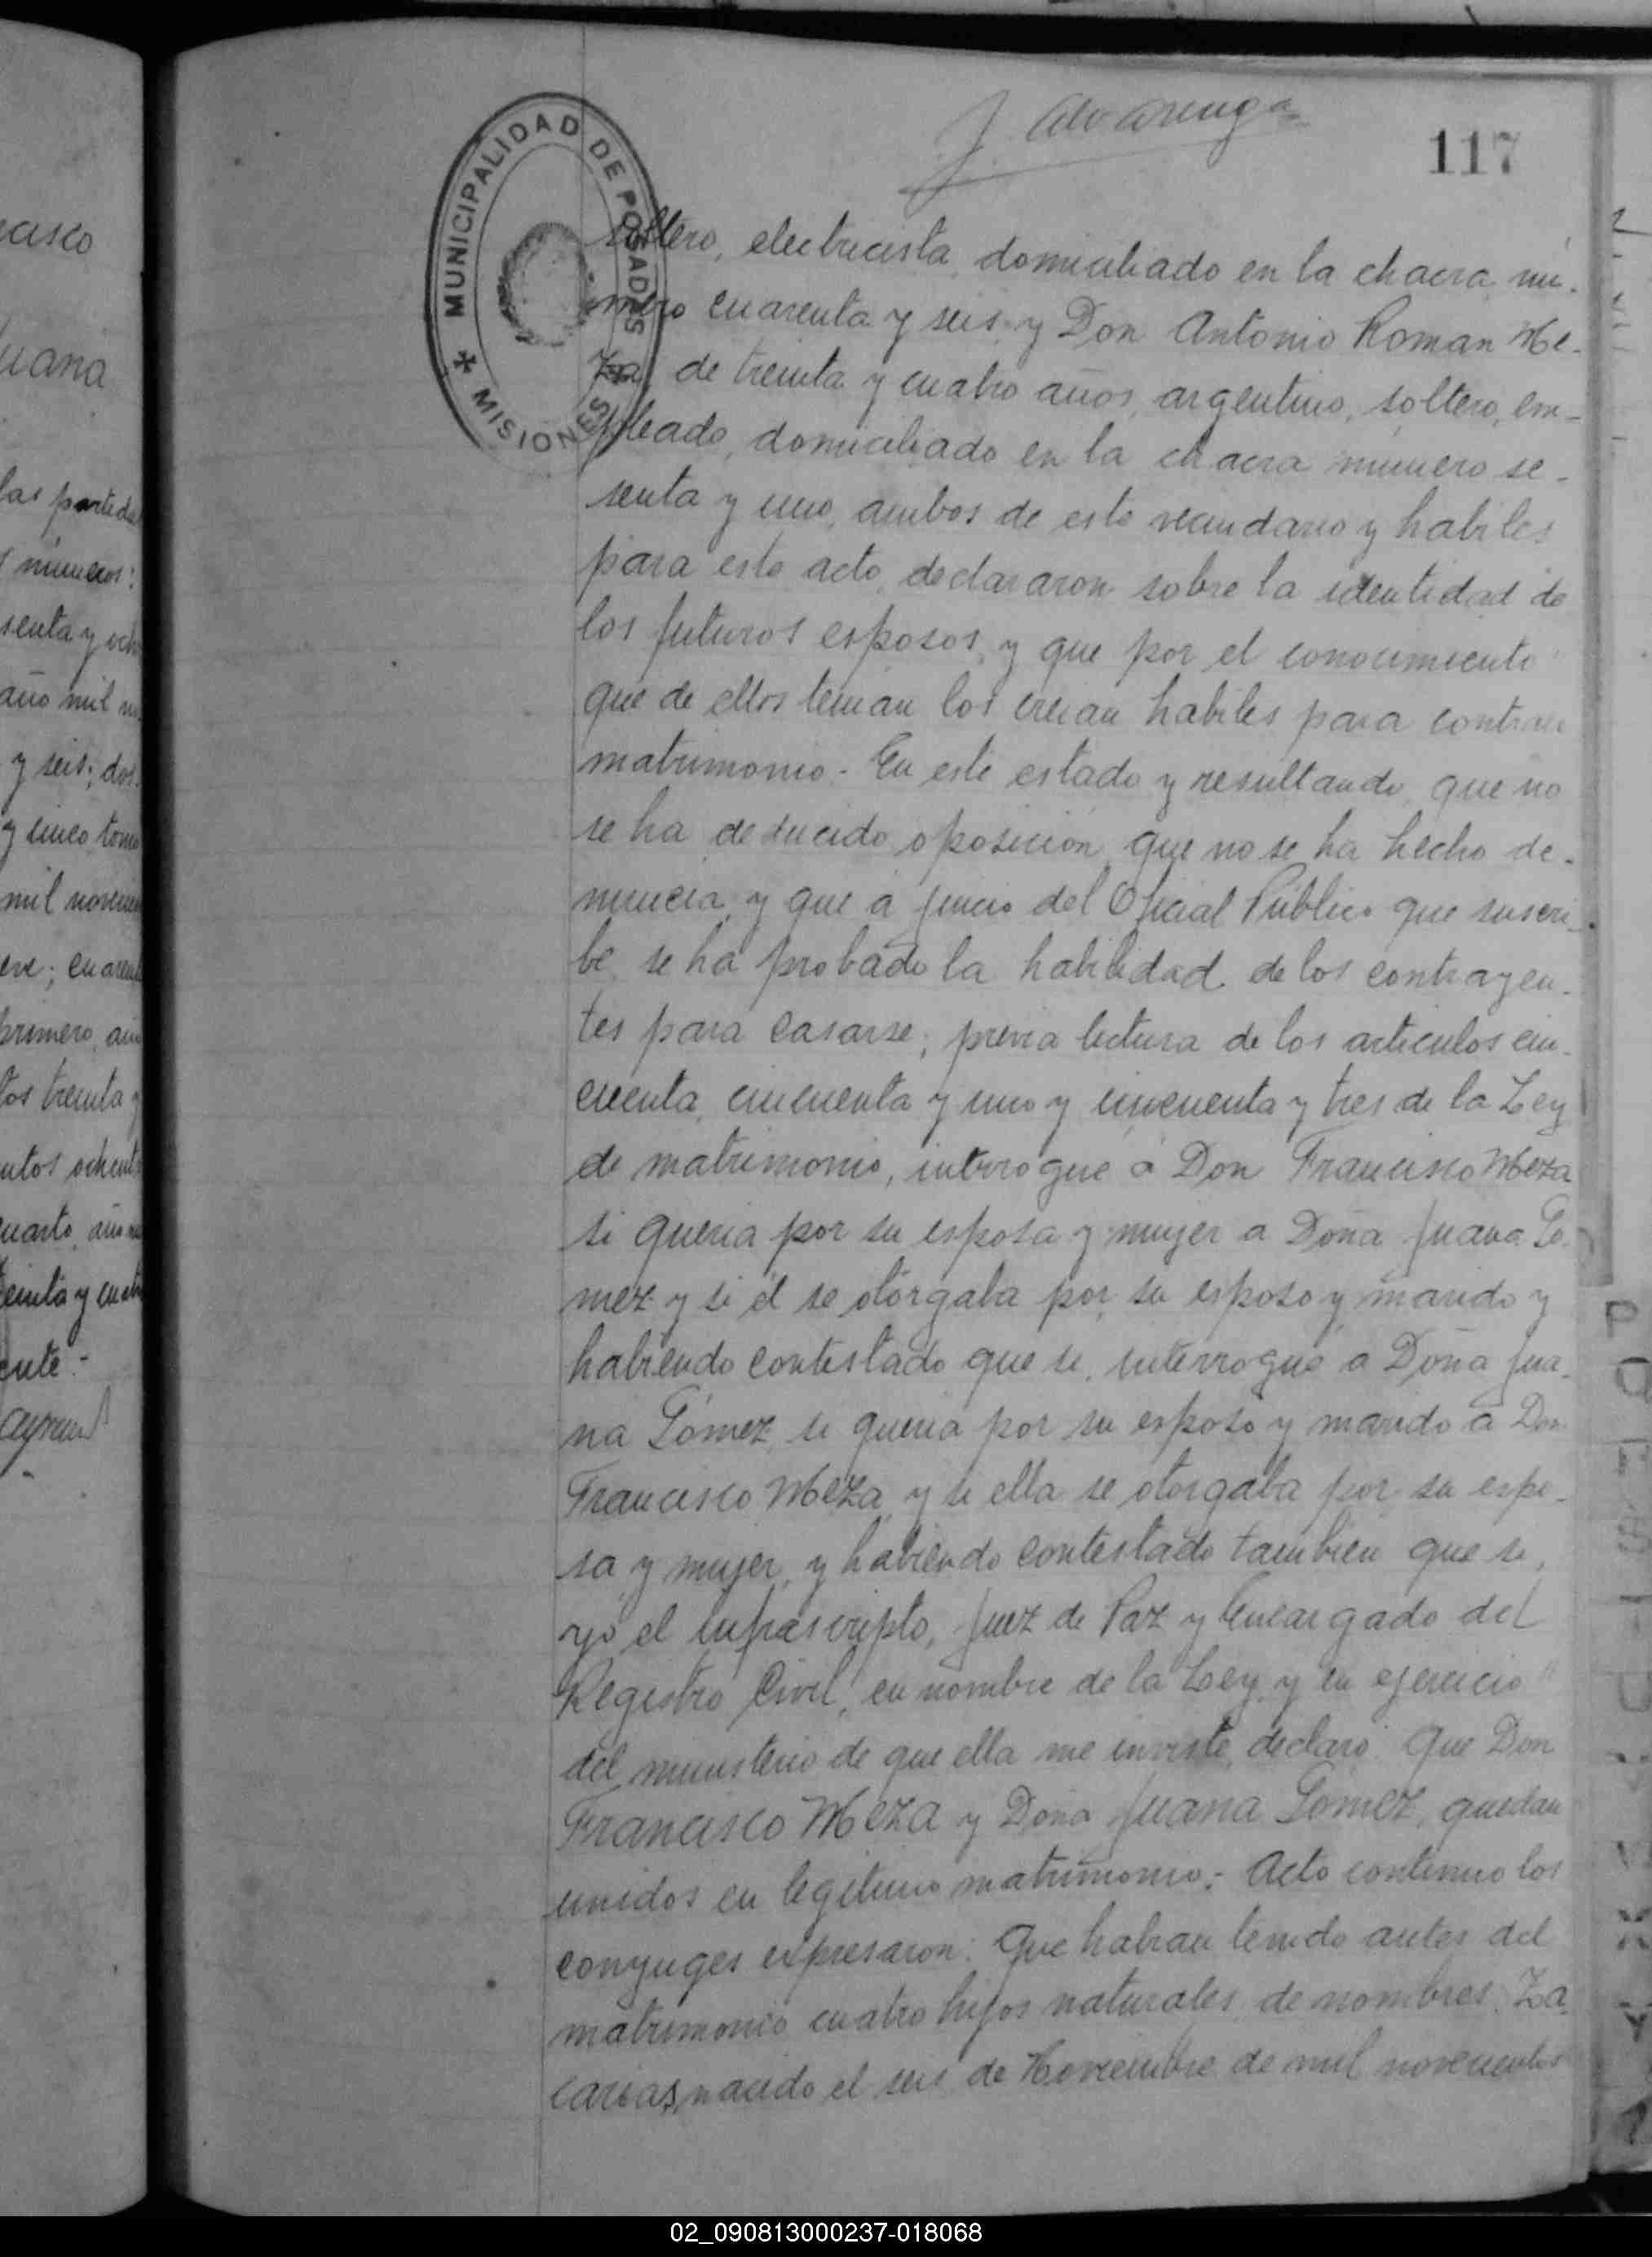 J. Alvarenga
117
MUNICIPALIDAD DE POSADAS
MISIONES
soltero, electricista, domiciliado en la chacra nú-
mero cuarenta y seis y Don Antonio Roman Me-
za, de treinta y cuatro años, argentino, soltero, em-
pleado, domiciliado en la chacra número se-
senta y uno, ambos de este vecindario y habiles
para este acto, declararon sobre la identidad de
los futuros esposos, y que por el conocimiento
que de ellos tenian los creian habiles para contraer
matrimonio.- En este estado y resultando, que no
se ha deducido oposición, que no se ha hecho de-
nuncia, y que á juicio del Oficial Público que suscri-
be, se ha probado la habilidad de los contrayen-
tes para casarse; previa lectura de los articulos cin-
cuenta, cincuenta y uno y cincuenta y tres de la Ley
de matrimonio, interrogué á Don Francisco Meza
si queria por su esposa y mujer a Doña Juana Gó-
mez y si él se otorgaba por su esposo y marido y
habiendo contestado que si, interrogué a Doña Jua-
na Gómez, si queria por su esposo y marido á Don
Francisco Meza, y si ella se otorgaba por su espo-
sa y mujer, y habiendo contestado tambien que si,
yo el infrascripto, Juez de Paz y Encargado del
Registro Civil, en nombre de la Ley, y en ejercicio
del ministerio de que ella me inviste, declaro: Que Don
Francisco Meza y Doña Juana Gomez, quedan
unidos en legitimo matrimonio.- Acto continuo los
conyuges expresaron: Que habian tenido antes del
matrimonio cuatro hijos naturales, de nombres: Za-
carias, nacido el seis de Noviembre de mil novecientos
casco
uana
las partidas
s números:
senta y och
año mil n
y seis; dos
y cinco, tomo
mil novecien
cuaren
primero, añ
tos treinta y
ntos ochent
cuarto, año
einta y cuatr
ente.-
02_090813000237-018068